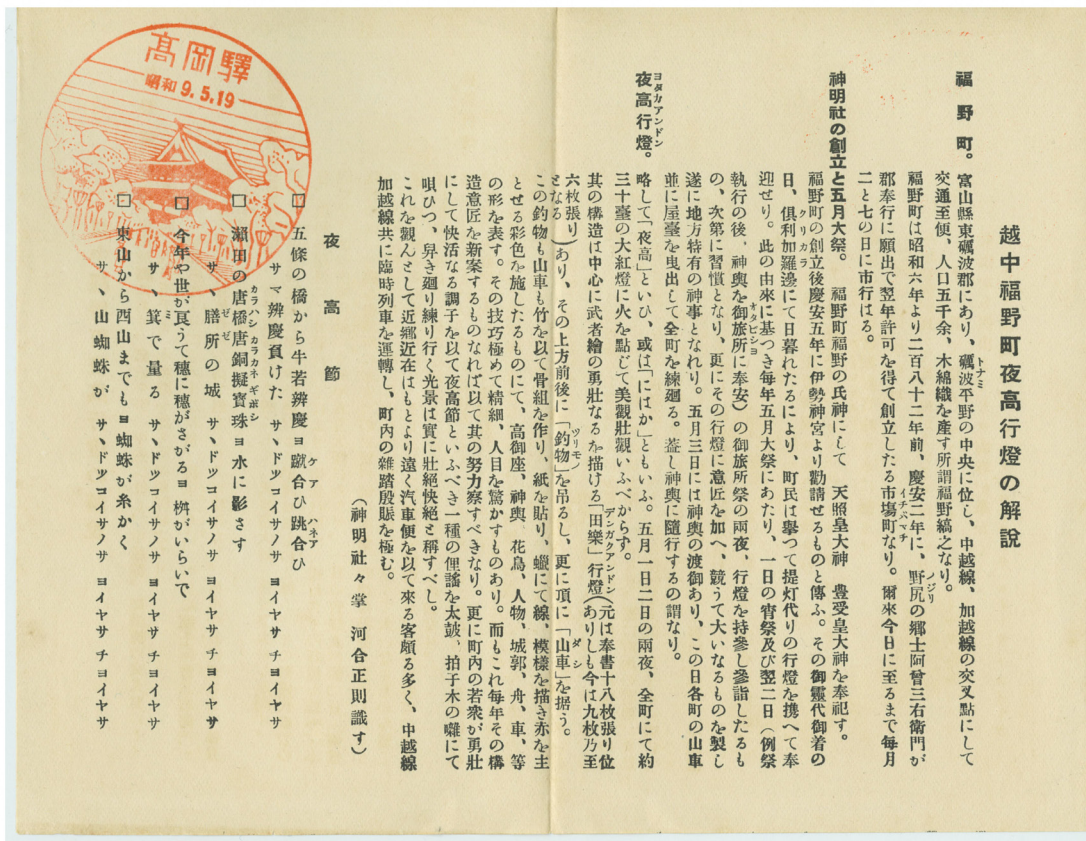 越中福野町夜高行燈の解說
福野町。
富山縣東礪波郡にあり、礪波平野の中央に位し、中越線、加越線の交叉點にして
交通至便、人口五千余、木綿織を產す所謂福野縞之なり。
福野町は昭和六年より二百八十二年前、慶安二年に、野尻の鄕士阿曾三右衛門が
郡奉行に願出で翌年許可を得て創立したる市場町なり。爾來今日に至るまで每月
二と七の日に市行はる。
神明社の創立と五月大祭。
福野町福野の氏神にして 天照皇大神 豊受皇大神を奉祀す。
福野町の創立後慶安五年に伊勢神宮より勸請せるものと傳ふ。その御靈代御着の
日、俱利加羅邊にて日暮れたるにより、町民は擧つて提灯代りの行燈を携へて奉
迎せり。此の由來に基つき每年五月大祭にあたり、一日の宵祭及び翌二日(例祭
執行の後、神輿を御旅所に奉安)の御旅所祭の兩夜、行燈を持參し參詣したるも
の、次第に習慣となり、更にその行燈に意匠を加へ、競うて大いなるものを製し
遂に地方特有の神事となれり。五月三日には神輿の渡御あり、この日各町の山車
並に屋臺を曳出して全町を練廻る。蓋し神輿に隨行するの謂なり。
夜高行燈。
略して「夜高」といひ、或は「にはか」ともいふ。五月一日二日の兩夜、全町にて約
三十臺の大紅燈に火を點じて美觀壯觀いふべからず。
其の構造は中心に武者繪の勇壯なるを描ける「田樂」行燈(元は奉書十八枚張り位
ありしも今は九枚乃至
六枚張り)あり、その上方前後に「釣物」を吊るし、更に頂に「山車」を据う。
となる
この釣物も山車も竹を以て骨組を作り、紙を貼り、蠟にて線、模樣を描き赤を主
とせる彩色を施したるものにて、高御座、神輿、花鳥、人物、城郭、舟、車、等
の形を表す。その技巧極めて精細、人目を驚かすものあり。而もこれ每年その構
造意匠を新案するものなれば以て其の努力察すべきなり。更に町內の若衆が勇壯
にして快活なる調子を以て夜高節といふべき一種の俚謠を太鼓、拍子木の囃にて
唄ひつ、舁き廻り練り行く光景は實に壯絕快絕と稱すべし。
これを觀んとして近鄕近在はもとより遠く汽車便を以て來る客頗る多く、中越線
加越線共に臨時列車を運轉し、町內の雜踏殷賑を極む。
(神明社々掌 河合正則識す)
夜高節
□ 五條の橋から牛若辨慶ョ蹴合ひ跳合ひ
サマ辨慶負けた サヽドツコイサノサ ヨイヤサ チョイヤサ
□ 瀬田の唐橋唐銅擬寶珠ョ水に影さす
サヽ膳所の城 サヽドツコイサノサ ヨイヤサ チョイヤサ
□ 今年や世が良うて穗に穗がさがるョ桝がいらいで
サヽ箕で量る サヽドツコイサノサ ヨイヤサ チョイヤサ
□ 東山から西山までもョ蜘蛛が糸かく
サヽ山蜘蛛が サヽドツコイサノサ ヨイヤサ チョイヤサ
トナミ
ノジリ
イチバマチ
クリカラ
オタビシヨ
ヨタカアンドン
デンガクアンドン
ツリモノ
ダシ
ケア
ハネア
カラハシ カラカネギボシ
ゼゼ
ミ
髙岡驛
昭和9.5.19